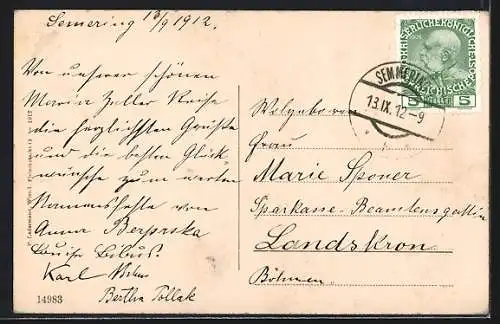 Semering 13/9 1912.
Von unserer schönen
Maria Zeller Reise
die herzlichsten Grüße
und die besten Glück-
wünsche zum werten
Namensfeste von
Anna
Louise Bibus.
Karl
Bertha Pollak
14983
SEMMERING
13.IX.12-9
5 HELLER 5
Wolgeboren
Frau
Marie Sponer
Sparkasse-Beamtensgattin
Landskron
Böhmen